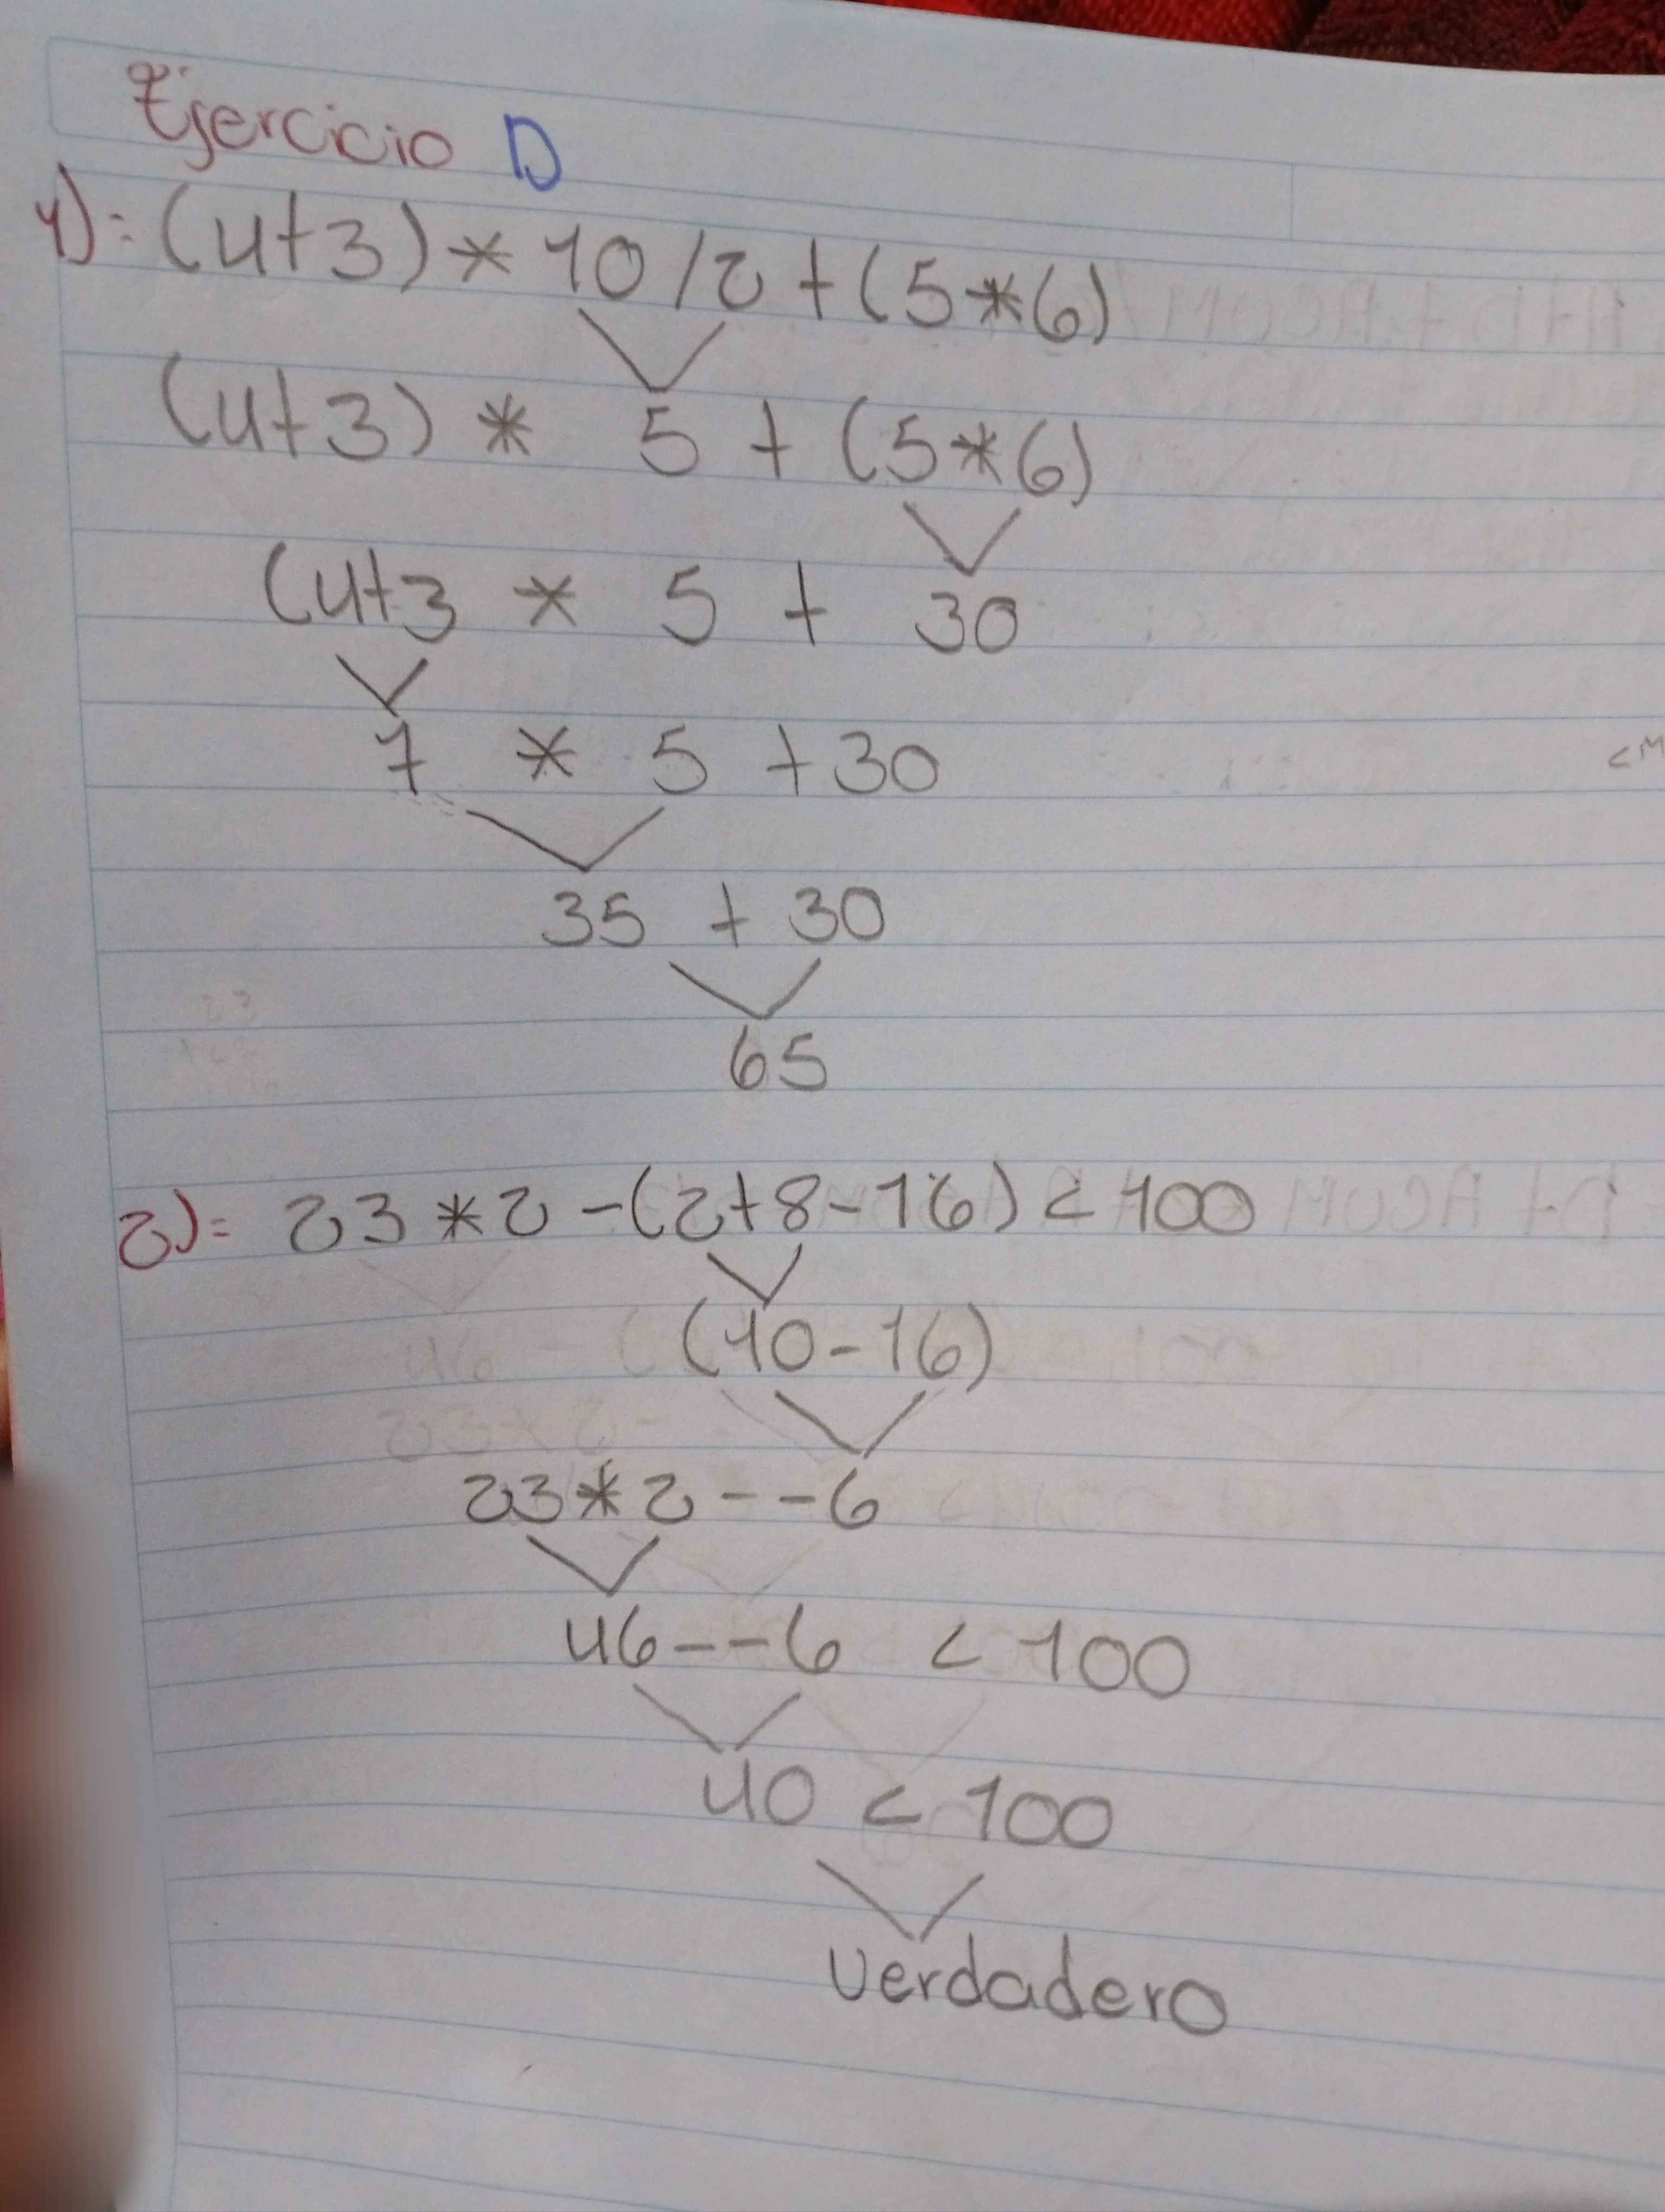 Ejercicio D
1):(4+3)*10/2+(5*6)
(4+3) * 5 + (5*6)
(4+3 * 5 + 30
7 * 5 +30
35 + 30
65
2)= 23*2-(2+8-16)<100
(10-16)
23*2--6
46--6 < 100
40 < 100
Verdadero